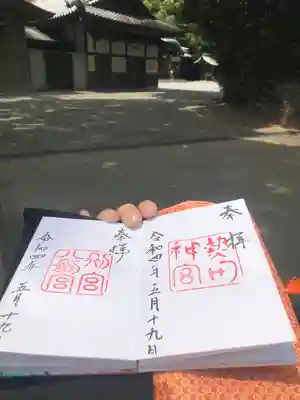 奉拝
熱田
神宮
令和四年五月十九日
奉拝
別宮
八剣宮
令和四年五月十九